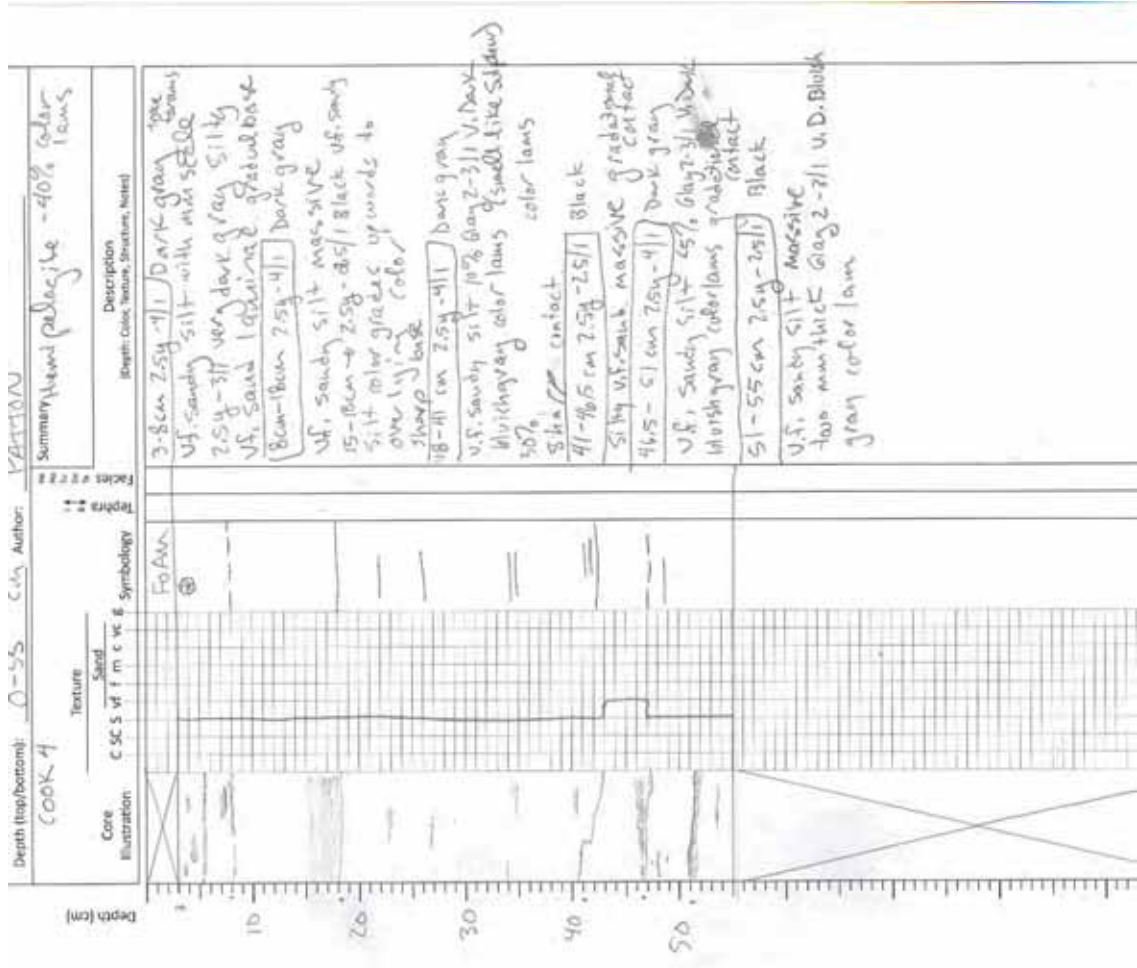 Depth (top/bottom): 0-55 cm Author: PATTON
COOK 4
Summary hemipelagite - 40% color
lams
Depth (cm)
Core
Illustration
Texture
Sand
C SC S vf f m c vc g
Symbology
Tephra
Facies
Description
(Depth: Color, Texture, Structure, Notes)
FOAM
3
10
20
30
40
50
3-8cm 2.5y-4/1 Dark gray
forams
vf. sandy silt with mm scale
2.5y-3/1 very dark gray silty
vf. sand laminae gradual base
8cm-18cm 2.5y-4/1 Dark gray
vf. sandy silt massive
15-18cm → 2.5y-2.5/1 Black vf. sandy
silt color grades upwards to
overlying color
sharp base
18-41 cm 2.5y-4/1 Dark gray
v.f. sandy silt 10% Glay 2-3/1 V. Dark
bluish gray color lams (smell like
50% color lams
sharp contact
41-46.5 cm 2.5y-2.5/1 Black
silty v.f. sand massive gradational
contact
46.5-51 cm 2.5y-4/1 Dark gray
v.f. sandy silt 25% Glay 2-3/1 V. Dark
bluish gray color lams gradational
contact
51-55cm 2.5y-2.5/1 Black
v.f. sandy silt massive
two mm thick Glay 2-3/1 V.D. Bluish
gray color lam